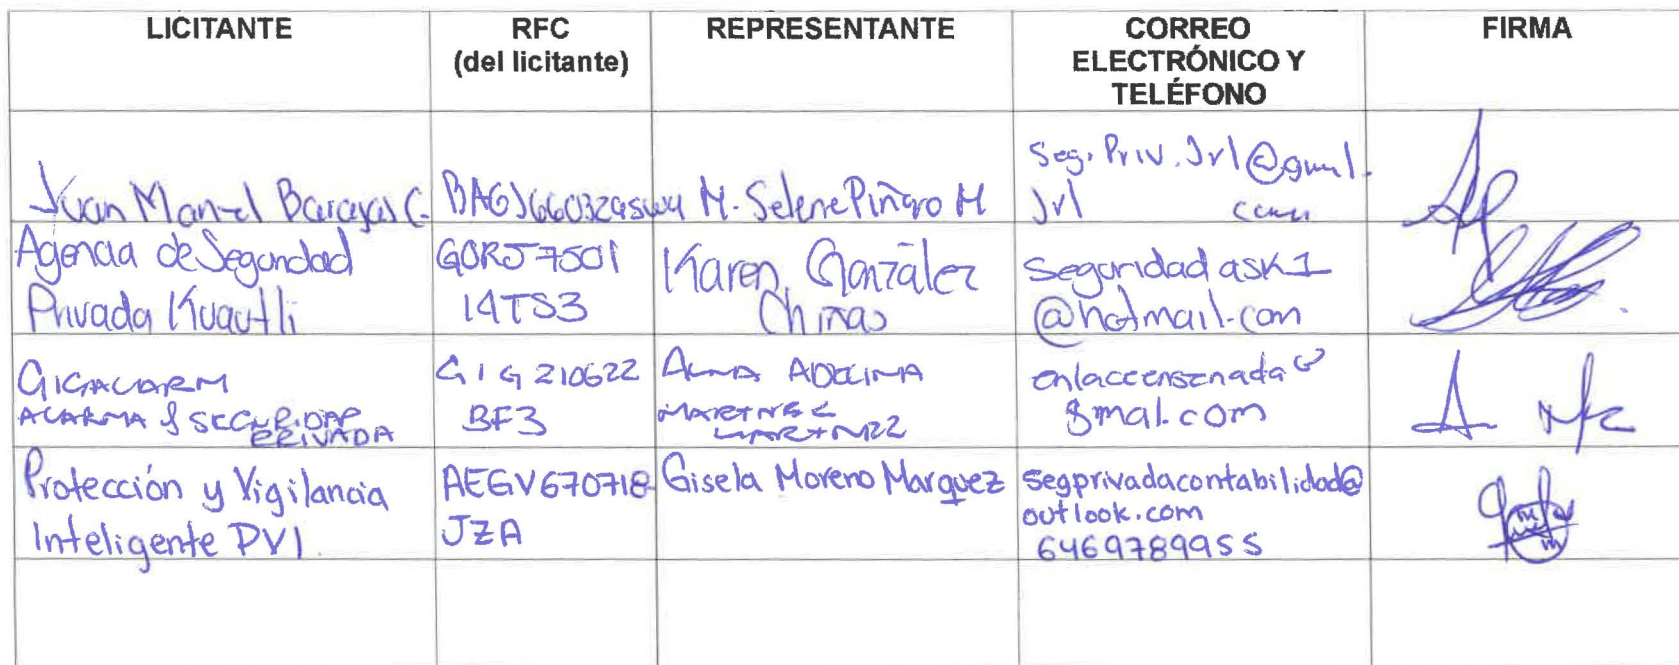 LICITANTE
RFC
(del licitante)
REPRESENTANTE
CORREO
ELECTRÓNICO Y
TELÉFONO
FIRMA
Juan Manuel Barajas C.
M. Selene Piñaro M
Seg. Priv. Jrl @gmail.
Jrl
com
Agencia de Seguridad
Privada Kuautli
GORJ7501
14TS3
Karen González
Chinas
Seguridadask1
@hotmail.com
GIGALARM
ALARMA y SEGURIDAD
PRIVADA
GIG210622
BF3
ALMA ADELINA
MARTINEZ
MARTINEZ
enlaceensenada@
gmail.com
Protección y Vigilancia
Inteligente PVI.
AEGV670718
JZA
Gisela Moreno Marquez
segprivadacontabilidad@
outlook.com
6469789955